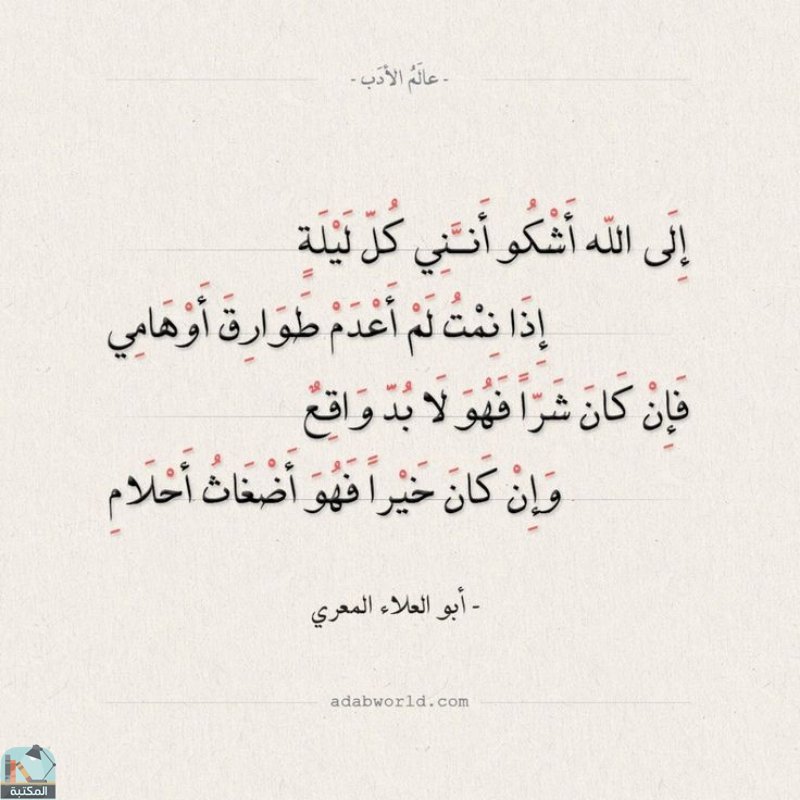 - عالَمُ الأدَب -
إِلَى اللّه أَشْكُو أَنَّنِي كُلّ لَيْلَةٍ
إِذَا نِمْتُ لَمْ أَعْدَمْ طَوَارِقَ أَوْهَامِي
فَإِنْ كَانَ شَرّاً فَهُوَ لَا بُدّ وَاقِعٌ
وَإِنْ كَانَ خَيْراً فَهُوَ أَضْغَاثُ أَحْلَامِ
- أبو العلاء المعري
adabworld.com
المكتبة